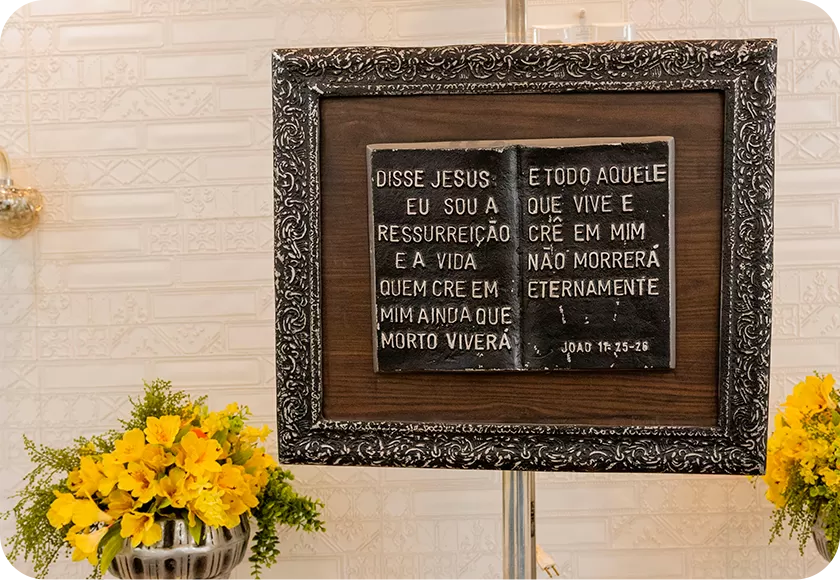 DISSE JESUS
EU SOU A
RESSURREIÇÃO
E A VIDA
QUEM CRE EM
MIM AINDA QUE
MORTO VIVERÁ
E TODO AQUELE
QUE VIVE E
CRÊ EM MIM
NÃO MORRERÁ
ETERNAMENTE
JOAO 11-25-26